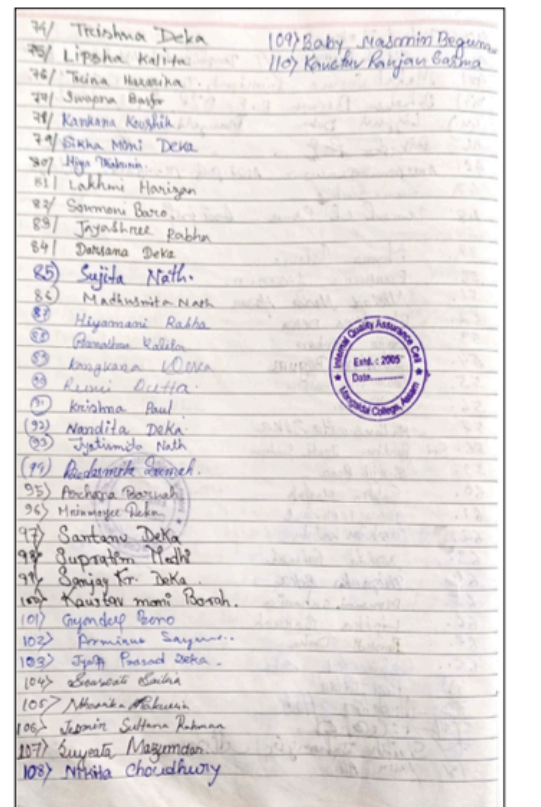 74/ Trishna Deka
75/ Lipsha Kalita
76/ Trina Hazarika
77/ Swapna
78/ Kankana Koushik
79/ Sikha Moni Deka
80/
81/ Lakhmi Harizan
82/ Sonmoni Baro
83/ Jayashree Rabha
84/ Darsana Deka
85) Sujita Nath.
86) Madhusmita Nath
87 Hiyamani Rabha
88 Kalita
89
90 Rumi Dutta.
91 Krishna Paul
(92) Nandita Deka
93 Jyotismita Nath
(94)
95) Archana Baruah
96) Deka
97) Santanu Deka
98) Supratim Medhi
99) Sanjay Kr. Deka.
100) Kaustav moni Borah.
101)
102)
103) Prasad Deka.
104)
105)
106) Jesmin Sultana Rahman
107) Sujata Mazumdar.
108) Nikita Choudhury
109) Baby Masmin Begum
110) Ranjan Sarma
Internal Quality Assurance Cell
Estd.: 2005
Date
Mangaldai College, Assam